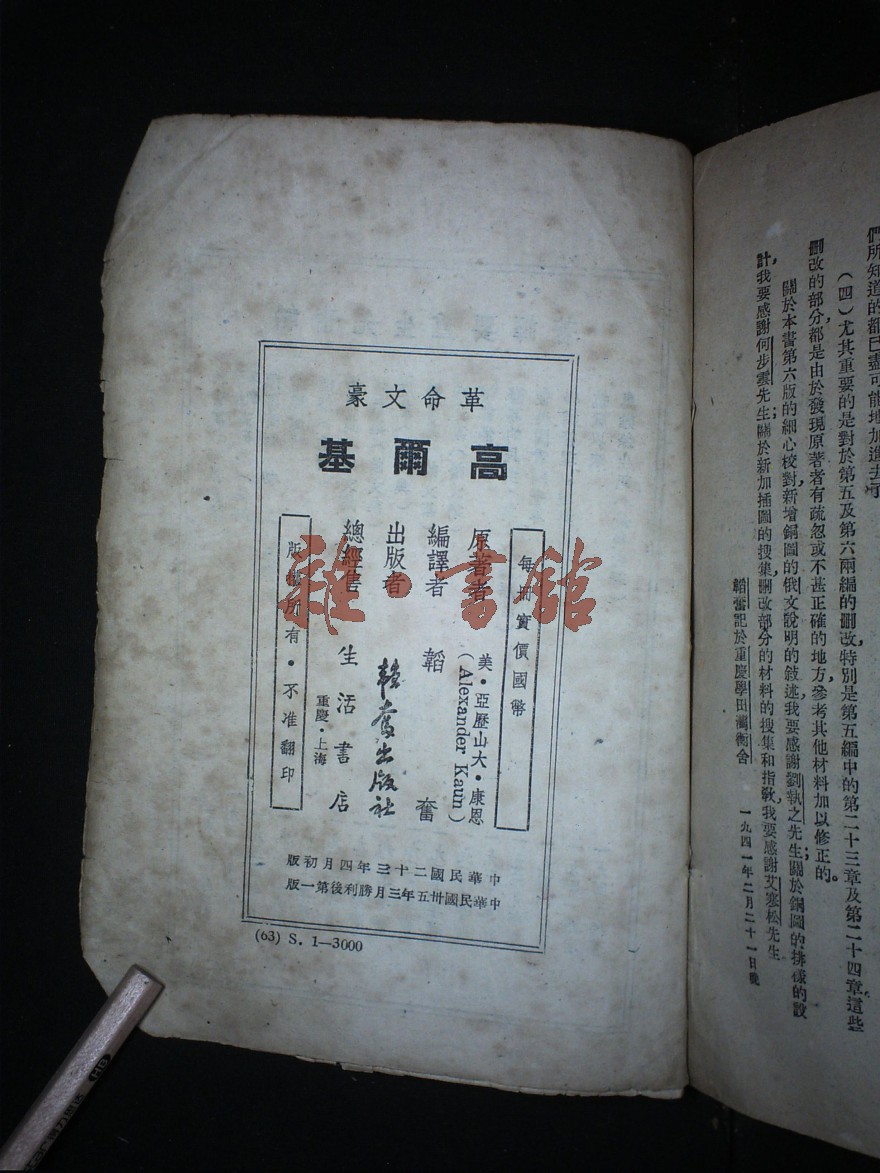 們所知道的都已盡可能地加進去了
（四）尤其重要的是對於第五及第六兩編的刪改，特別是第五編中的第二十三章及第二十四章這些
刪改的部分都是由於發現原著者有疏忽或不甚正確的地方，參考其他材料加以修正的。
關於本書第六版的細心校對，新增銅圖的俄文說明的敍述，我要感謝劉執之先生；關於銅圖的排樣的設
計，我要感謝何步雲先生；關於新加插圖的搜集，刪改部分的材料的搜集和指敎，我要感謝艾寒松先生
韜奮記於重慶學田灣衡舍
一九四一年二月二十一日晚
革命文豪
高爾基
每冊實價國幣
原著者 美·亞歷山大·康恩
(Alexander Kaun)
編譯者 韜奮
出版者 韜奮出版社
總經售 生活書店
重慶·上海
版權所有·不准翻印
中華民國二十三年四月初版
中華民國卅五年三月勝利後第一版
(63) S. 1—3000
雜·書館